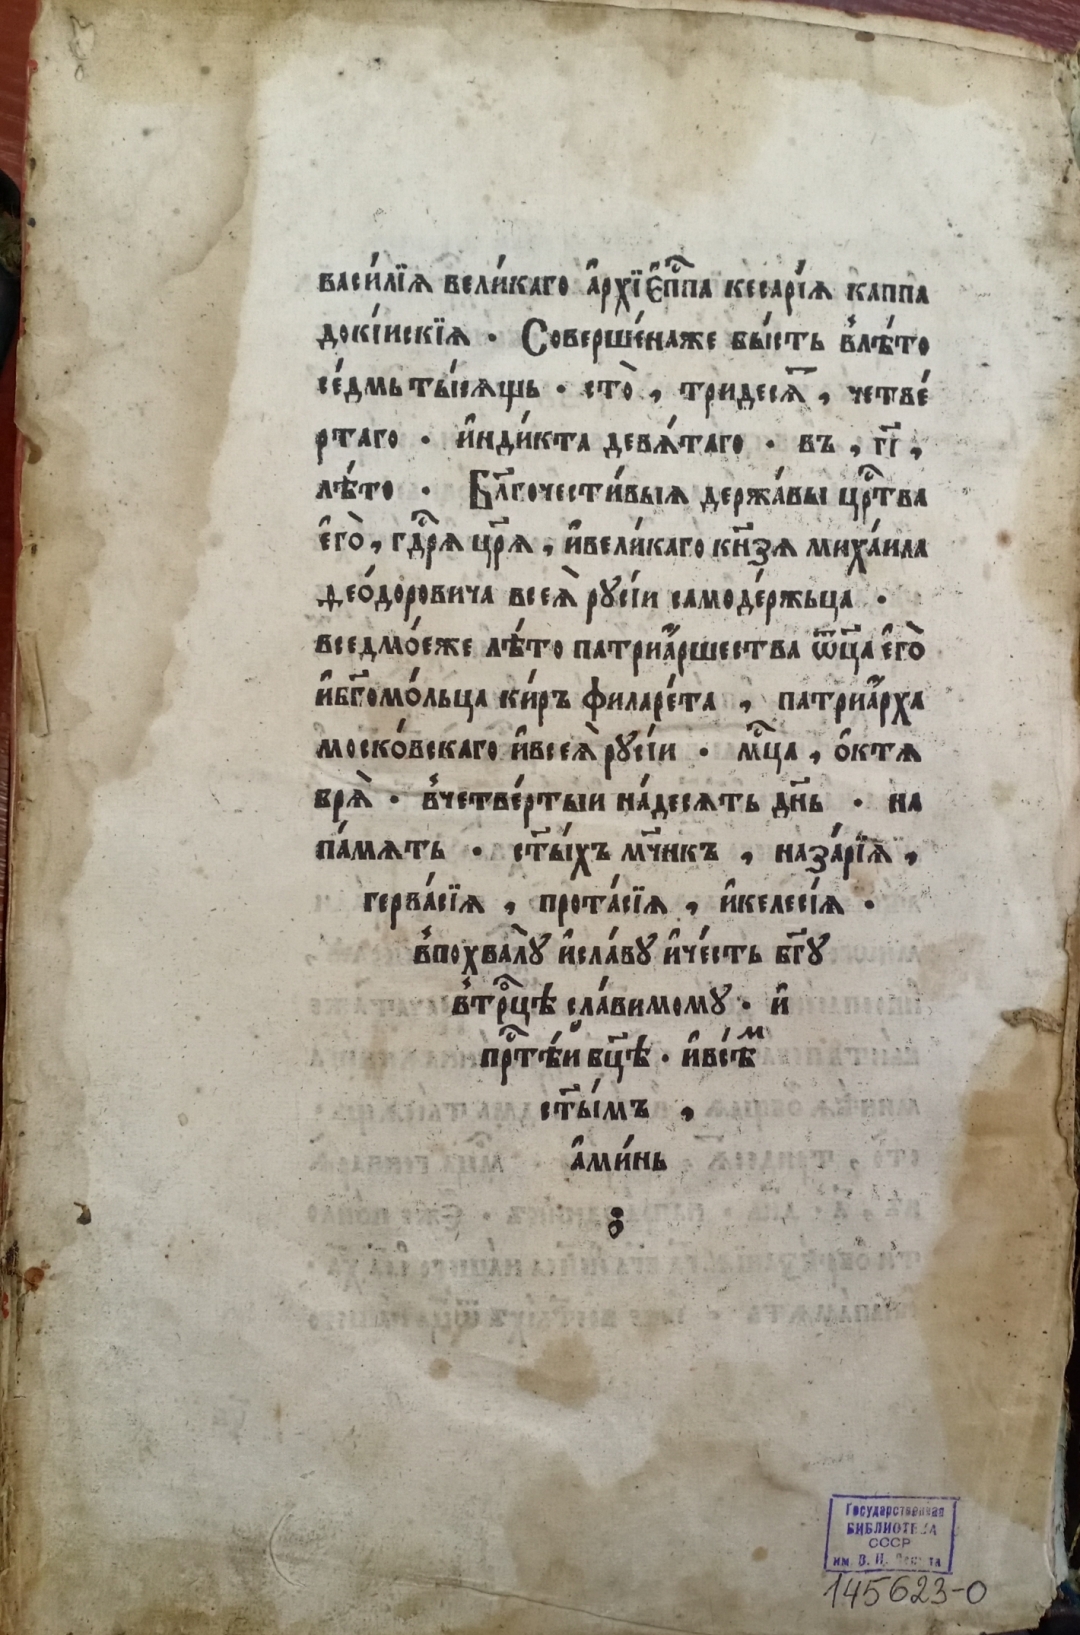 васи́лїѧ вели́каго а҆рхїє҆пⷭ҇па кесарі́ѧ каппа
докі́искїѧ . Соверше́наже бы́сть влѣ́то
се́дмь ты́сѧщь . сто̀ , тридесѧ҃ , четве́
ртаго . и҆нди́кта девѧ́таго . въ , гі҃ ,
лѣ́то . Бл҃гочести́выѧ держа́вы црⷭ҇тва
є҆го̀ , гдⷭ҇рѧ цр҃ѧ , и҆вели́каго кн҃зѧ миха́ила
ѳео́доровича всеѧ̀ рꙋсі́и самоде́ржьца .
вседмо́еже лѣ́то патриа́ршества ѿц҃а є҆го̀
и҆бг҃омо́льца ки́ръ филаре́та , патриа́рха
моско́вскаго и҆всеѧ̀ рꙋсі́и . мⷭ҇ца , ѻ҆ктѧ
врѧ̀ . вчетве́ртыи на́десѧть дн҃ь . на
па́мѧть . ст҃ы́хъ мч҃нкъ , наза́рїѧ ,
герва́сїѧ , прота́сїѧ , и҆келесі́ѧ .
впохвалꙋ̀ и҆сла́вꙋ и҆че́сть бг҃ꙋ
втрⷪ҇цѣ сла́вимомꙋ . и҆
прⷭ҇тѣ́и бц҃ѣ . и҆всѣ́ⷨ
ст҃ы́мъ ,
а҆ми́нь
Государственная
БИБЛИОТЕКА
СССР
им. В. И. Ленина
145623-0